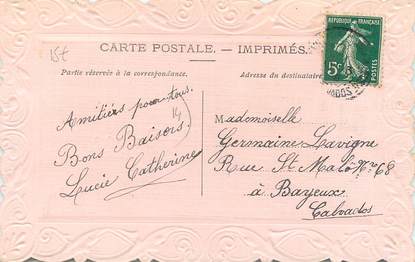 15t
CARTE POSTALE. — IMPRIMÉS.
Partie réservée à la correspondance.
Adresse du destinataire
RÉPUBLIQUE FRANÇAISE
5c
POSTES
Amitiers pour tous.
Bons Baisers.
Lucie Catherine
14
Mademoiselle
Germaine Lavigne
Rue St Malo No 68
à Bayeux
Calvados